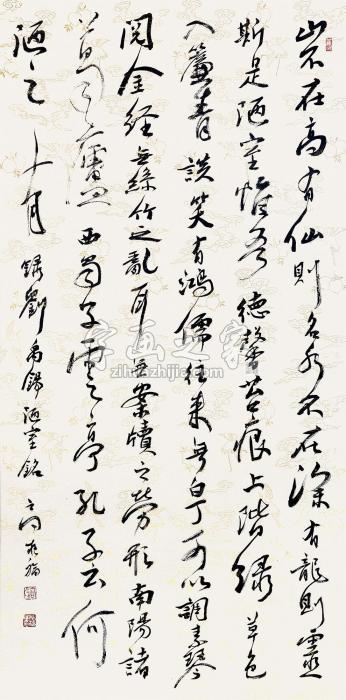 山不在高有仙則名水不在深有龍則靈
斯是陋室惟吾德馨苔痕上階緑草色
入簾青談笑有鴻儒往来無白丁可以調素琴
閲金經無絲竹之亂耳無案牘之勞形南陽諸
葛廬西蜀子雲亭孔子云何
陋之有 錄劉禹錫陋室銘
字画之家
zihuazhijia.com